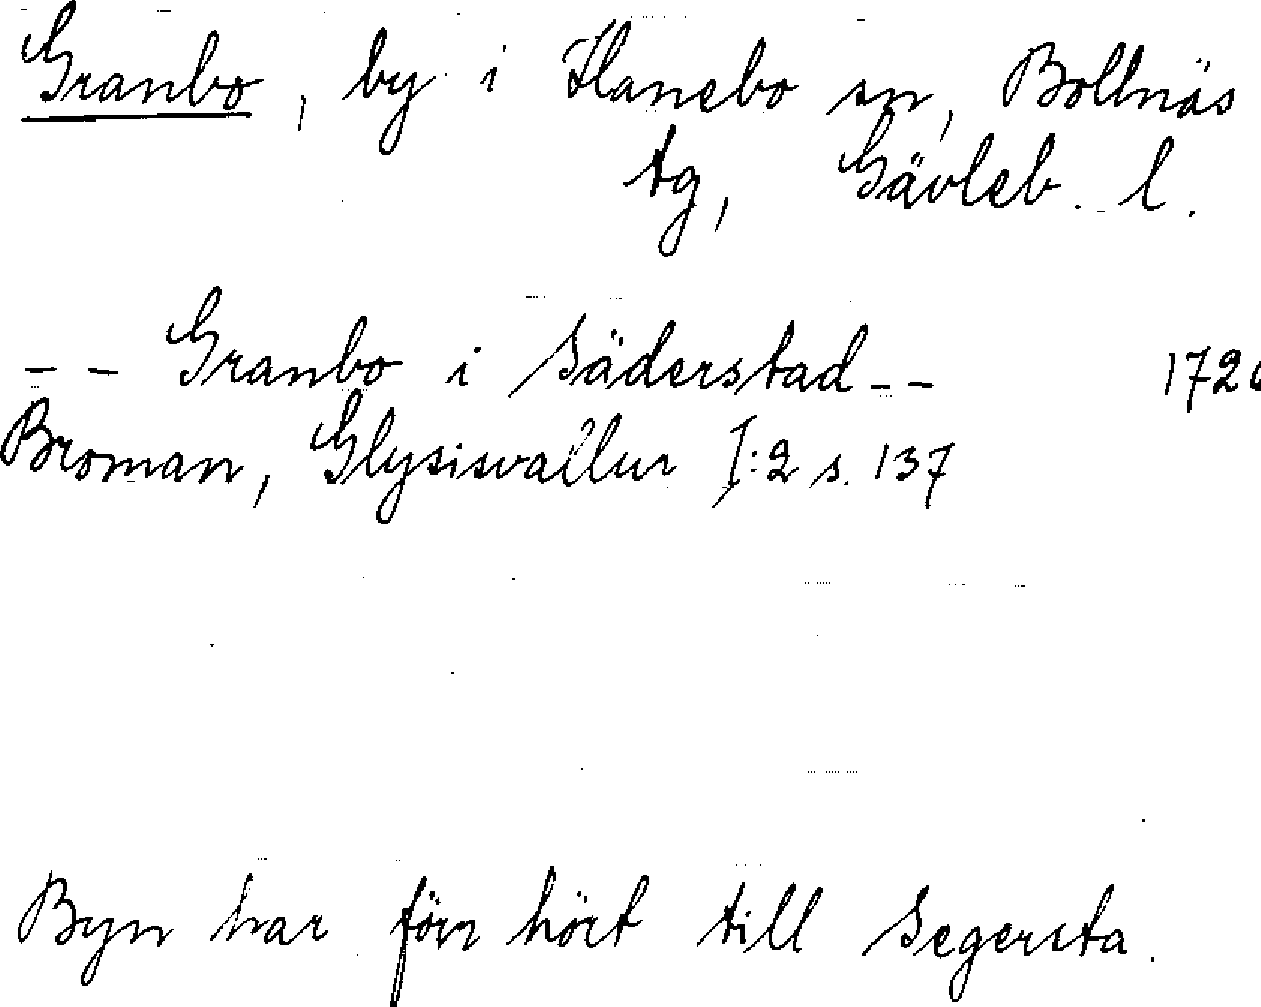 Granbo, by i Hanebo sn, Bollnäs
tg, Gävleb. l.
-- Granbo i Säderstad--
Broman, Glysisvallur I:2 s. 137
Byn har förr hört till Segersta.